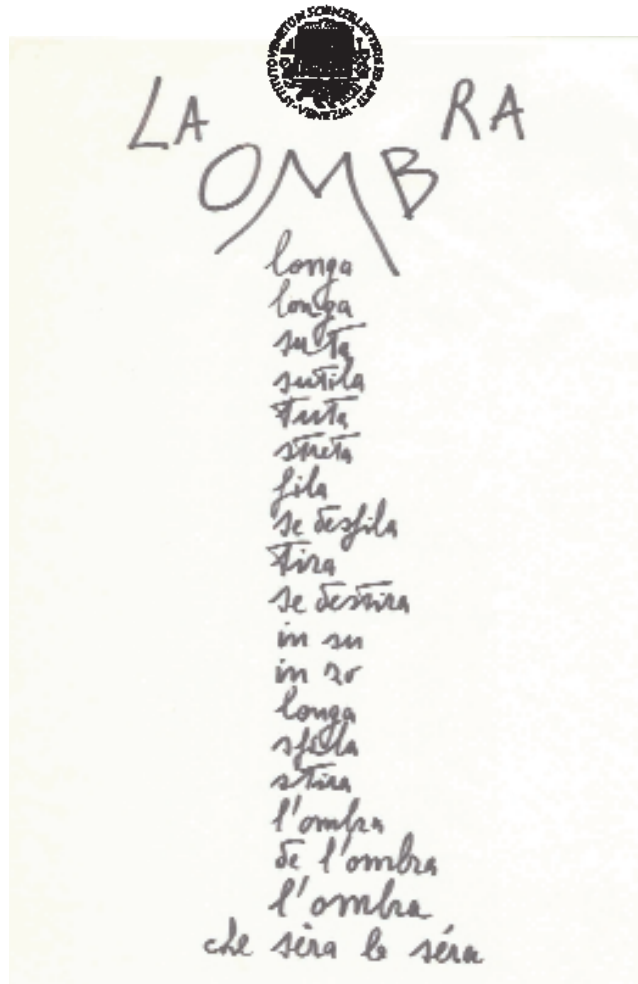 ISTITUTO VENETO DI SCIENZE LETTERE ED ARTI - VENEZIA
LA OMBRA
longa
longa
suta
sutila
tuta
streta
fila
se desfila
tira
se destira
in su
in zo
longa
sfila
stira
l'ombra
de l'ombra
l'ombra
che sèra la séra